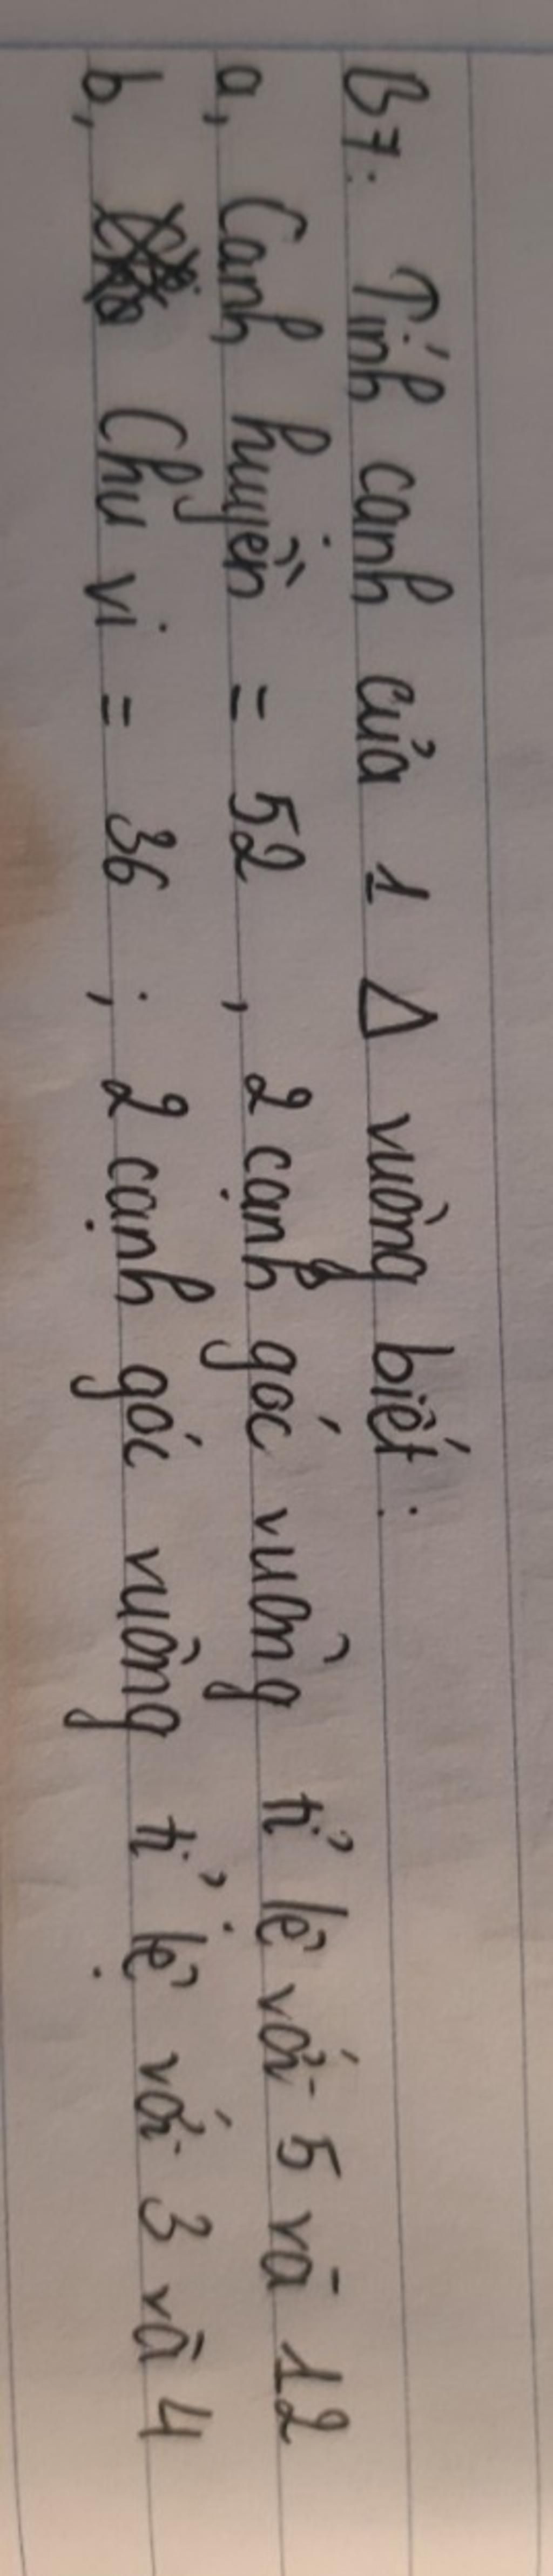 B7. Tính cạnh của 1 Δ vuông biết :
a, Cạnh huyền = 52 , 2 cạnh góc vuông tỉ lệ với 5 và 12
b, Chu vi = 36 ; 2 cạnh góc vuông tỉ lệ với 3 và 4